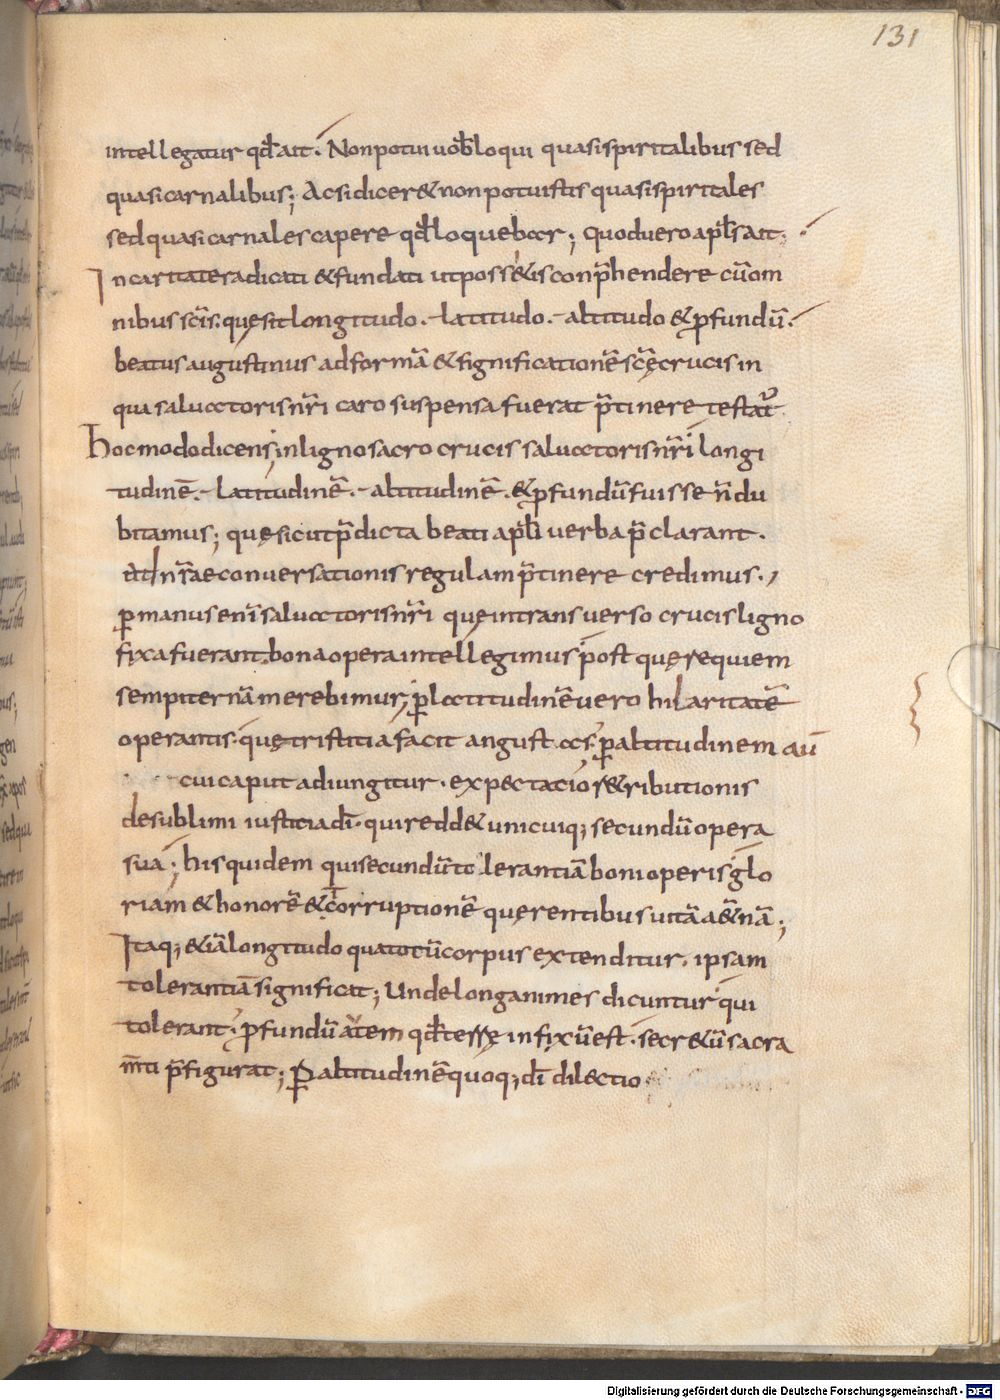 131
intellegatur qđ ait. Non potui uob̄ loqui quasi spiritalibus sed
quasi carnalibus; Ac si dicer& non potuistis quasi spiritales
sed quasi carnales capere qđ loquebar; Quod uero apl̄s ait;
In caritate radicati & fundati ut poss&is conp̄hendere cū om
nibus sc̄is. quę sit longitudo. latitudo. altitudo & ꝓfundū.
beatus augustinus ad formā & significationē sc̄ę crucis in
qua saluatoris nr̄i caro suspensa fuerat ꝑtinere testat̄
hoc modo dicens; in ligno sacro crucis saluatoris nr̄i longi
tudinē. latitudinē. altitudinē. & ꝓfundū fuisse n̄ du
bitamus; quę sicut p̄dicta beati apl̄i uerba p̄clarant.
ad nr̄ae conuersationis regulam ꝑtinere credimus.
ꝑ manus enī saluatoris nr̄i quę in transuerso crucis ligno
fixa fuerant. bona opera intellegimus post quę requiem
sempiternā merebimur; ꝑ latitudinē uero hilaritatē
operantis. quę tristitia facit angustias. ꝑ altitudinem aū
cui caput adiungitur. expectatio r&ributionis
de sublimi iustitia dī. qui redd& unicuiq; secundū opera
sua; his quidem qui secundū tolerantiā boni operis glo
riam & honorē & īcorruptionē querentibus uitā a&nā;
Itaq; &iā longitudo qua totū corpus extenditur. ipsam
tolerantiā significat; Unde longanimes dicuntur qui
tolerant. ꝓfundū autem qđ terrę infixū est. secr&ū sacra
m̄ti p̄figurat; Per altitudinē quoq; dī dilectio
Digitalisierung gefördert durch die Deutsche Forschungsgemeinschaft - DFG